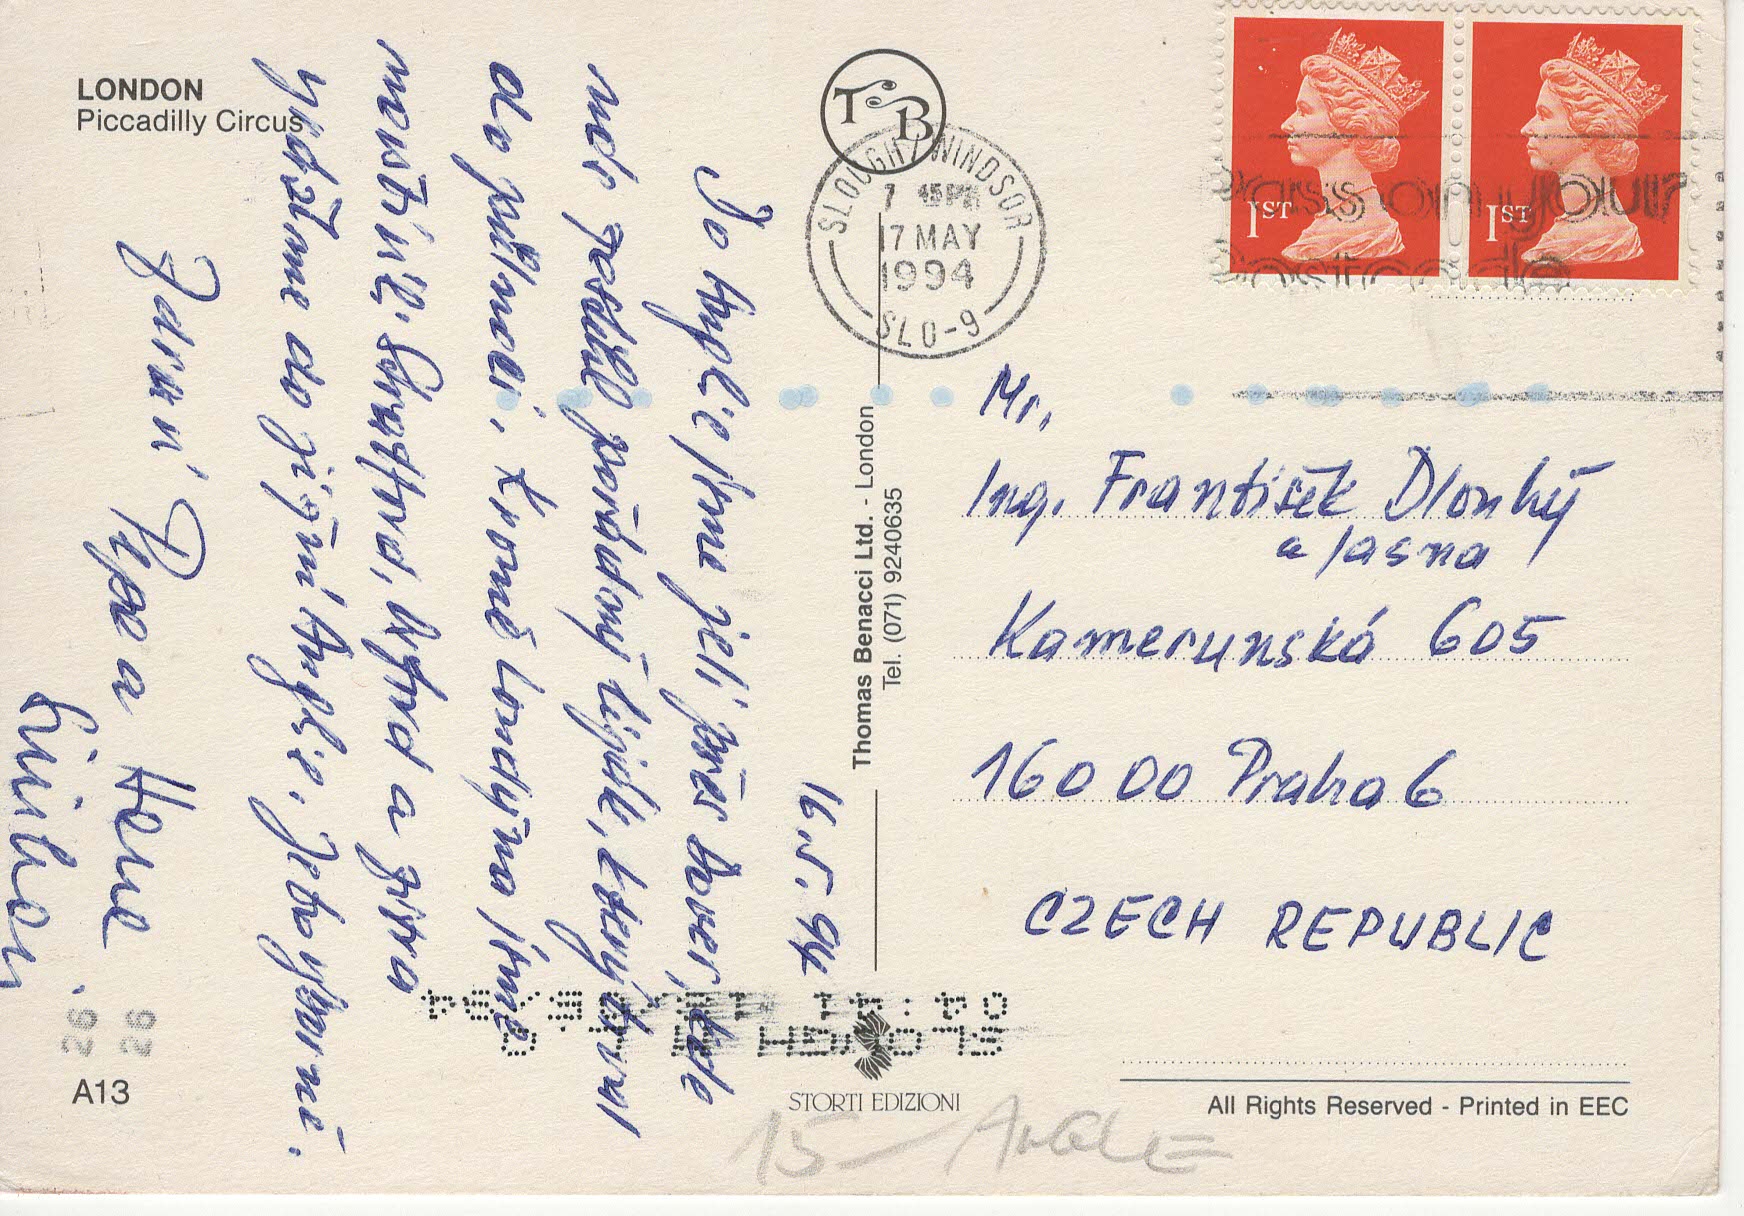 LONDON
Piccadilly Circus
TB
SLOUGH / WINDSOR
7 45PM
17 MAY
1994
SLO-9
1ST
1ST
Pass on your
Postcode
16.5.94
Do Anglie jsme jeli přes Dover, kde
nás postihl pořádný liják, který trval
do půlnoci. Kromě Londýna jsme
navštívili Stratford, Oxford a zítra
vyjíždíme do jižní Anglie. Je to výborné.
Zdraví Pepa a
Mr.
Ing. František Dlouhý
a Jasna
Kamerunská 605
160 00 Praha 6
CZECH REPUBLIC
Thomas Benacci Ltd. - London
Tel. (071) 9240635
26
26
A13
STORTI EDIZIONI
All Rights Reserved - Printed in EEC
15-